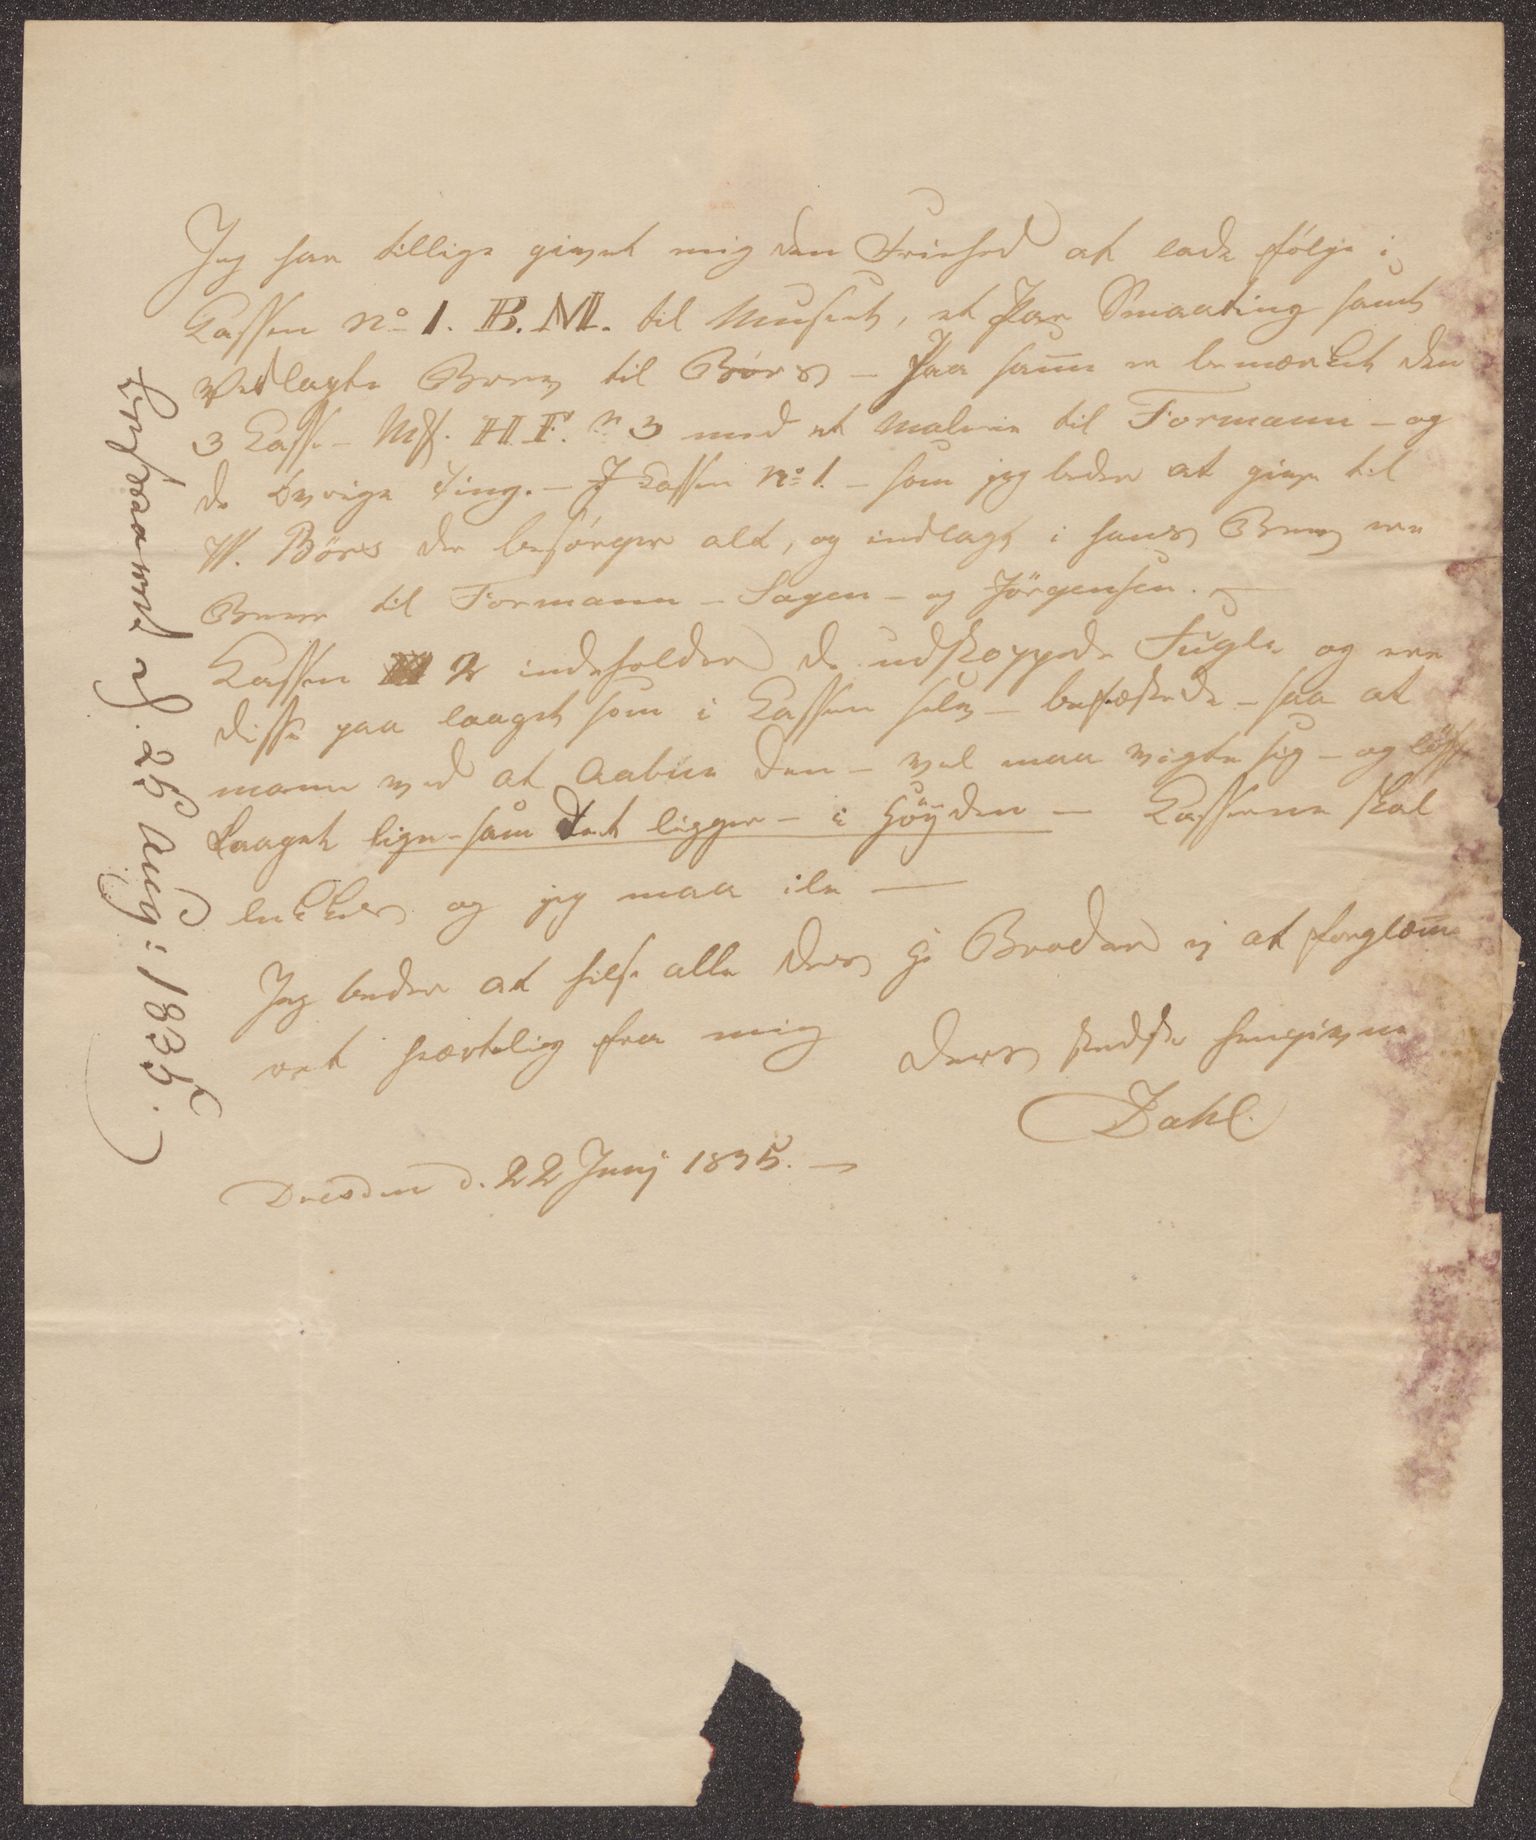 Jeg har tillige givet mig den Friehed at lade følge i
Cassen No 1. B. M. til Museet, et Par Smaating samt
Vedlagte Brev til Børs – Paa samme er bemærket den
3 Casse – H F. n 3 med et Malerie til Formann – og
de övrige Ting. – I Cassen No 1. – som jeg beder at give til
W. Börs der besörger alt, og indlagt i hans Brev ere
Breve til Formann – Sagen – og Jörgensen. –
Cassen 2 indeholder de udstoppede Fugle og ere
disse paa laaget som i Cassen selv – befæstede – saa at
mann ved at aabne den – vel maa vogte sig – og löfte
Laaget lige – som det ligger – i Höyden – Casserne skal
lukkes og jeg maa ile –
Jeg beder at hilse alle Deres Brødre ej at forglemme
ret hiertelig fra mig
Deres stedse hengivne
Dahl.
Dresden d. 22 Junj 1835. –
d. 25 Aug: 1835.